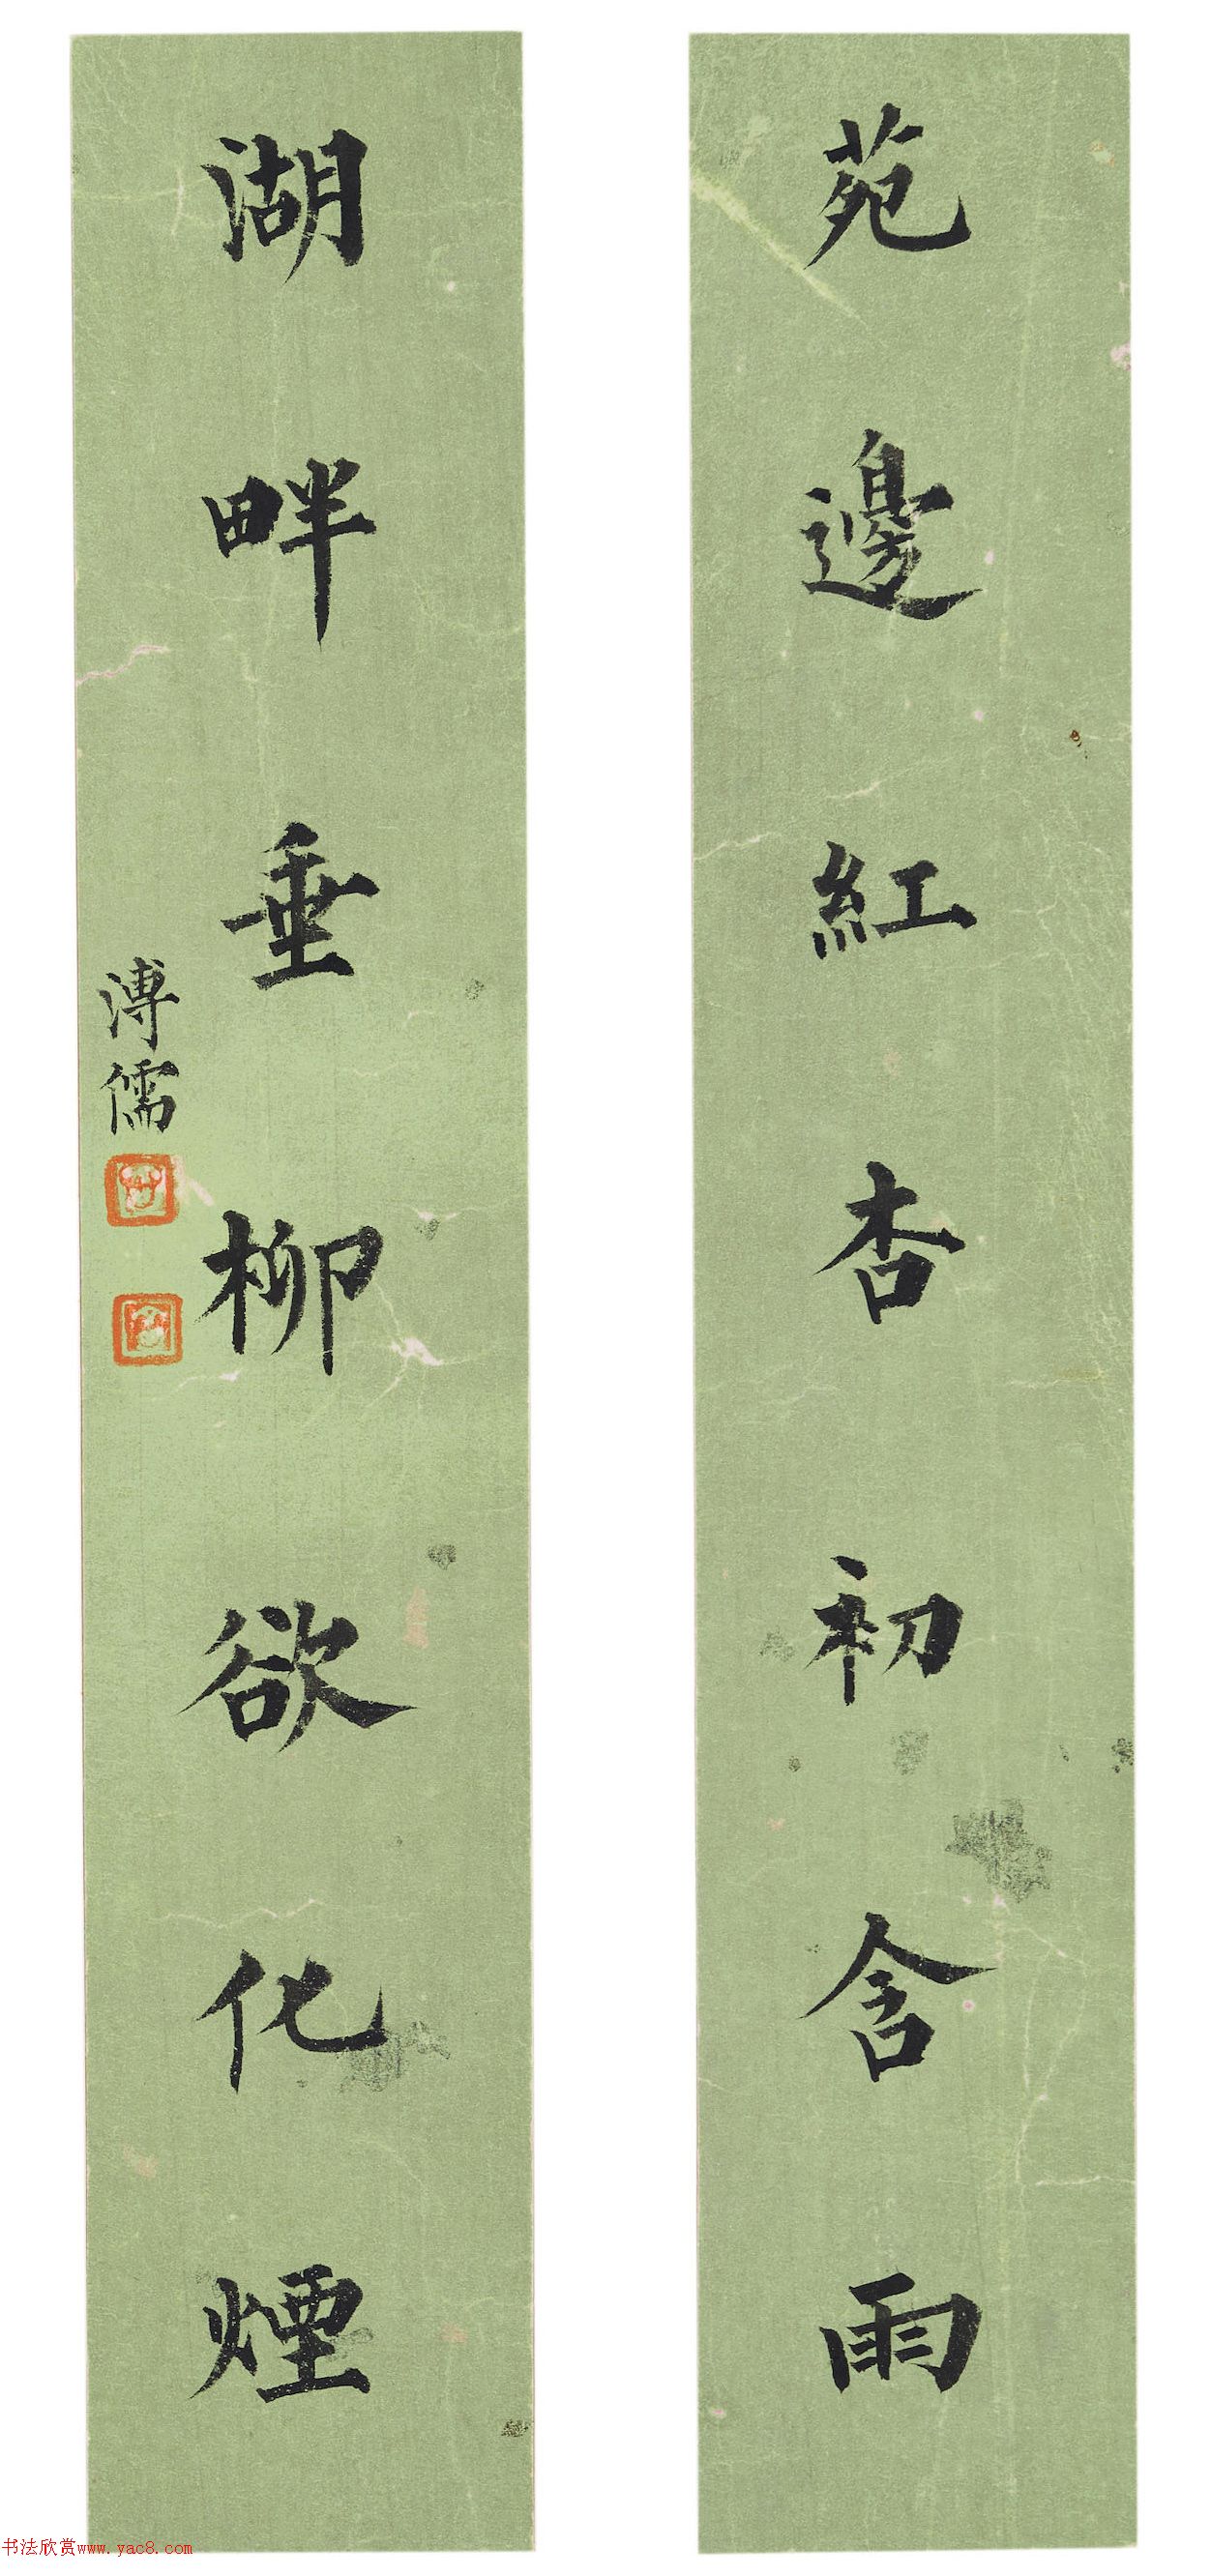 苑邊紅杏初含雨
湖畔垂柳欲化煙
溥儒
书法欣赏www.yac8.com